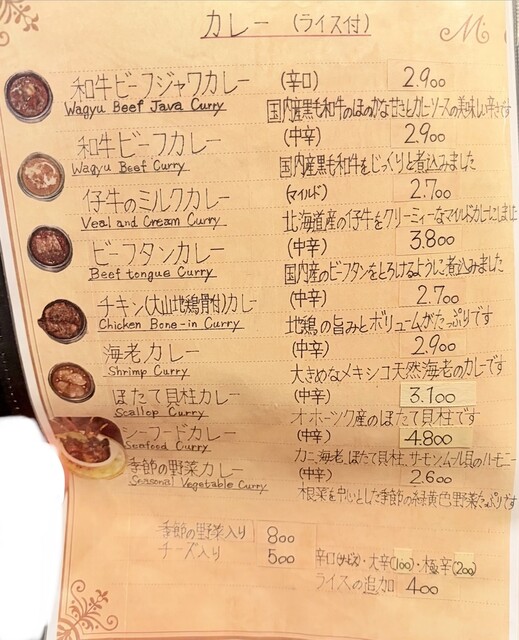 カレー (ライス付)
M
和牛ビーフジャワカレー (辛口) 2.900
Wagyu Beef Java Curry 国内産黒毛和牛のほのかな甘さとカレーソースの美味しい辛さです
和牛ビーフカレー (中辛) 2.900
Wagyu Beef Curry 国内産黒毛和牛をじっくりと煮込みました
仔牛のミルクカレー (マイルド) 2.700
Veal and Cream Curry 北海道産の仔牛をクリーミィーなマイルドカレーにしました
ビーフタンカレー (中辛) 3.800
Beef tongue Curry 国内産のビーフタンをとろけるように煮込みました
チキン(大山地鶏骨付)カレー (中辛) 2.700
Chicken Bone-in Curry 地鶏の旨みとボリュームがたっぷりです
海老カレー (中辛) 2.900
Shrimp Curry 大きめなメキシコ天然海老のカレーです
ほたて貝柱カレー (中辛) 3.100
Scallop Curry オホーツク産のほたて貝柱です
シーフードカレー (中辛) 4.800
Seafood Curry カニ、海老、ほたて貝柱、サーモン、ムール貝のハーモニー
季節の野菜カレー (中辛) 2.600
Seasonal Vegetable Curry 根菜を中心とした季節の緑黄色野菜たっぷりです
季節の野菜入り 800
チーズ入り 500 辛口(サービス)・大辛(100)・極辛(200)
ライスの追加 400